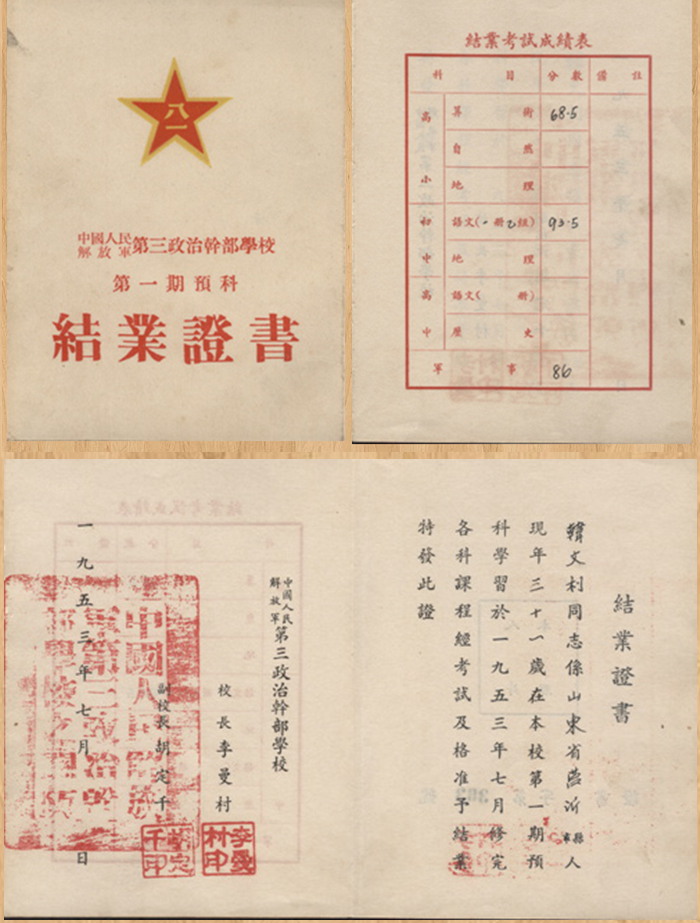 八一
中國人民解放軍第三政治幹部學校
第一期預科
結業證書
結業考試成績表
科目 分數 備註
高小 算術 68.5
自然
地理
初中 語文(一冊乙組) 93.5
地理
高中 語文( 冊)
歷史
軍事 86
結業證書
韓文利同志係山東省臨沂縣市人
現年三十一歲在本校第一期預
科學習於一九五三年七月修完
各科課程經考試及格准予結業
特發此證
中國人民解放軍第三政治幹部學校
校長李曼村
副校長胡定千
李曼村印
胡定千印
一九五三年七月 日